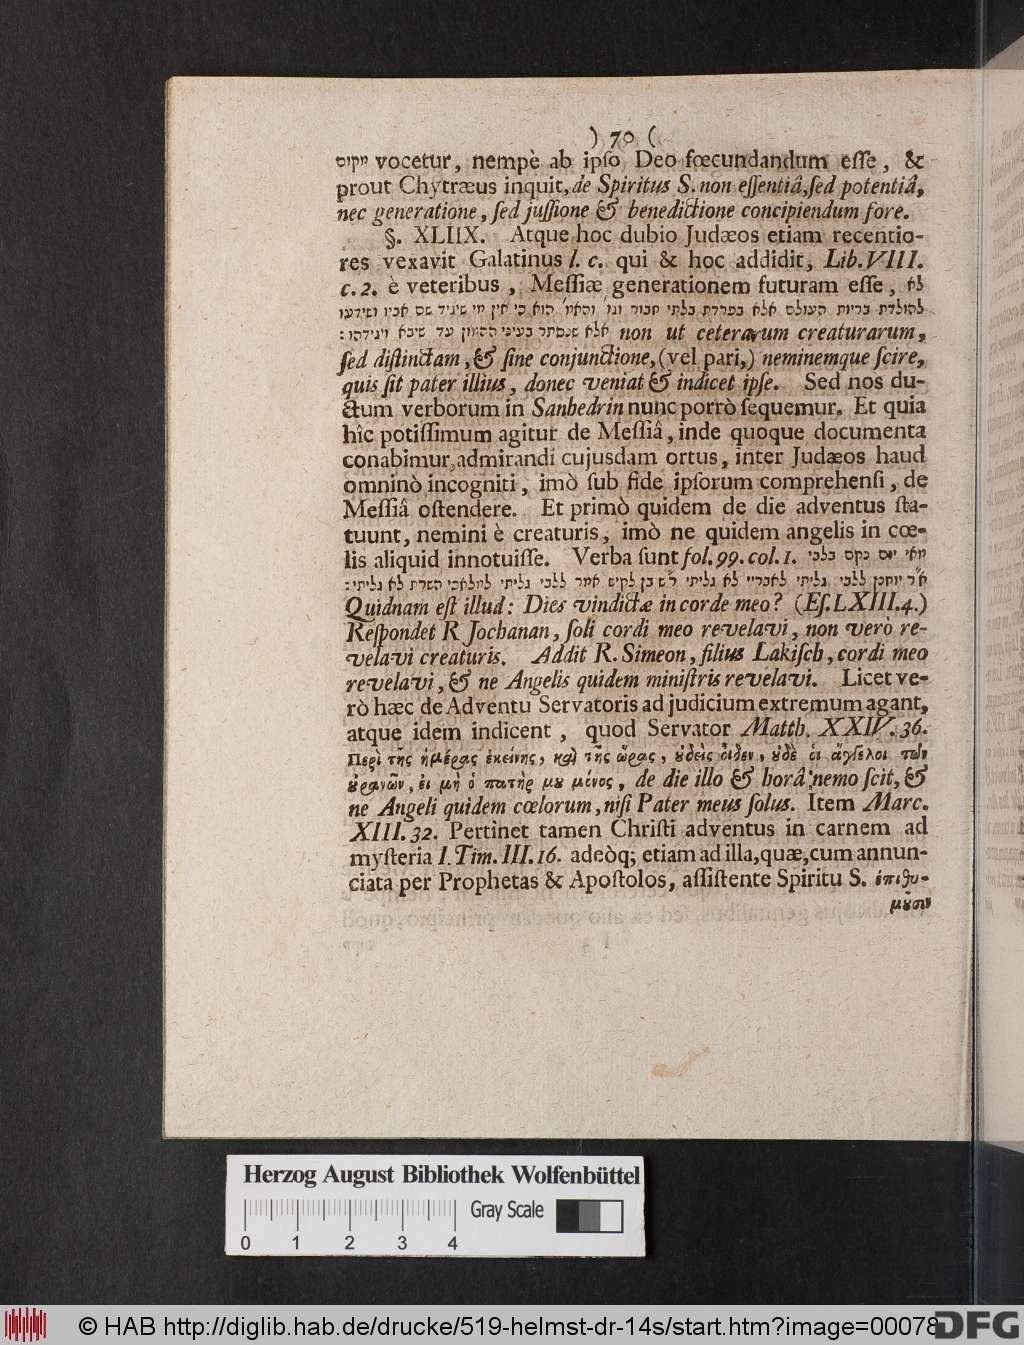 ) 70 (
מקום vocetur, nempè ab ipſo Deo fœcundandum eſſe, &
prout Chytræus inquit, de Spiritus S. non eſſentiâ, ſed potentiâ,
nec generatione, ſed juſſione & benedictione concipiendum fore.
§. XLIIX. Atque hoc dubio Judæos etiam recentio-
res vexavit Galatinus l. c. qui & hoc addidit, Lib. VIII.
c. 2. è veteribus, Meſſiæ generationem futuram eſſe, לא
כהולדת בריות העולם אלא בפרדת בלתי חבור וגו׳ הוא כי אין מי שיגיד שם אביו
אלא שנסתר בעיני ההמון עד שיבא ויגידהו: non ut ceterarum creaturarum,
ſed diſtinctam, & ſine conjunctione, (vel pari,) neminemque ſcire,
quis ſit pater illius, donec veniat & indicet ipſe. Sed nos du-
ctum verborum in Sanhedrin nunc porrò ſequemur. Et quia
hîc potiſſimum agitur de Meſſiâ, inde quoque documenta
conabimur admirandi cujusdam ortus, inter Judæos haud
omninò incogniti, imò ſub fide ipſorum comprehenſi, de
Meſſiâ oſtendere. Et primò quidem de die adventus ſta-
tuunt, nemini è creaturis, imò ne quidem angelis in cœ-
lis aliquid innotuiſſe. Verba ſunt fol. 99. col. 1. מאי יום נקם בלבי
א״ר יוחנן ללבי גליתי לאבריי לא גליתי ר״ש בן לקיש אמר ללבי גליתי למלאכי השרת לא גליתי:
Quidnam eſt illud: Dies vindictæ in corde meo? (Eſ. LXIII. 4.)
Reſpondet R Jochanan, ſoli cordi meo revelavi, non verò re-
velavi creaturis. Addit R. Simeon, filius Lakiſch, cordi meo
revelavi, & ne Angelis quidem miniſtris revelavi. Licet ve-
rò hæc de Adventu Servatoris ad judicium extremum agant,
atque idem indicent, quod Servator Matth. XXIV. 36.
Περὶ τῆς ἡμέρας ἐκείνης, καὶ τῆς ὥρας, ȣ̓δεὶς οἶδεν, ȣ̓δὲ οἱ ἄγγελοι τῶν
ȣ̓ρανῶν, εἰ μὴ ὁ πατὴρ μȣ μόνος, de die illo & horâ nemo ſcit, &
ne Angeli quidem cœlorum, niſi Pater meus ſolus. Item Marc.
XIII. 32. Pertinet tamen Chriſti adventus in carnem ad
myſteria I. Tim. III. 16. adeòq; etiam ad illa, quæ, cum annun-
ciata per Prophetas & Apoſtolos, aſſiſtente Spiritu S. ἐπιθυ-
μȣ͂σιν
Herzog August Bibliothek Wolfenbüttel
Gray Scale
0 1 2 3 4
© HAB http://diglib.hab.de/drucke/519-helmst-dr-14s/start.htm?image=00078
DFG